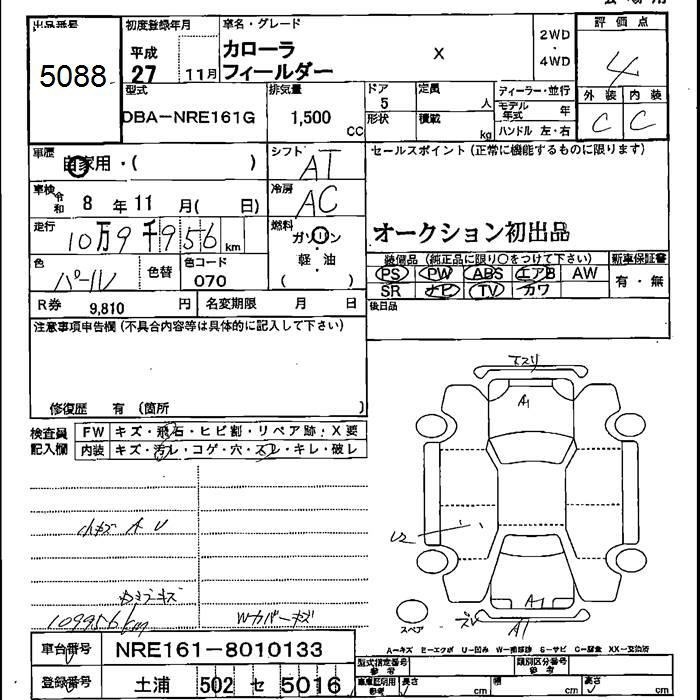 出品番号
5088
初度登録年月
平成
27 11月
車名・グレード
カローラ
フィールダー
X
2WD
・
4WD
評価点
4
型式
DBA-NRE161G
排気量
1,500
CC
ドア
5
形状
定員
人
積載
kg
ディーラー・並行
モデル
年式
年
ハンドル 左・右
外装 内装
C C
車歴
自家用・( )
シフト
AT
車検
令
和 8 年 11 月( 日)
冷房
AC
走行
10万9千956 km
燃料
ガソリン
・
軽・油
( )
色
パール
色替
色コード
070
R券 9,810 円
名変期限 月 日
セールスポイント (正常に機能するものに限ります)
オークション初出品
装備品 (純正品に限り○をつけて下さい)
PS PW ABS エアB AW
SR ナビ TV カワ
新車保証書
有・無
後日品
注意事項申告欄 (不具合内容等は具体的に記入して下さい)
修復歴 有 (箇所 )
検査員
記入欄
FW キズ・飛石・ヒビ割・リペア跡・X要
内装 キズ・汚レ・コゲ・穴・スレ・キレ・破レ
小キズ A U
109956km
Wカバーキズ
エスリ
A1
U2
A1
スレ
A1
スペア
A-キズ E-エクボ U-凹み
車台番号
NRE161-8010133
登録番号
土浦 502 セ 5016
型式指定番号
参考
類別区分番号
参考
長さ cm
幅 cm
高さ cm